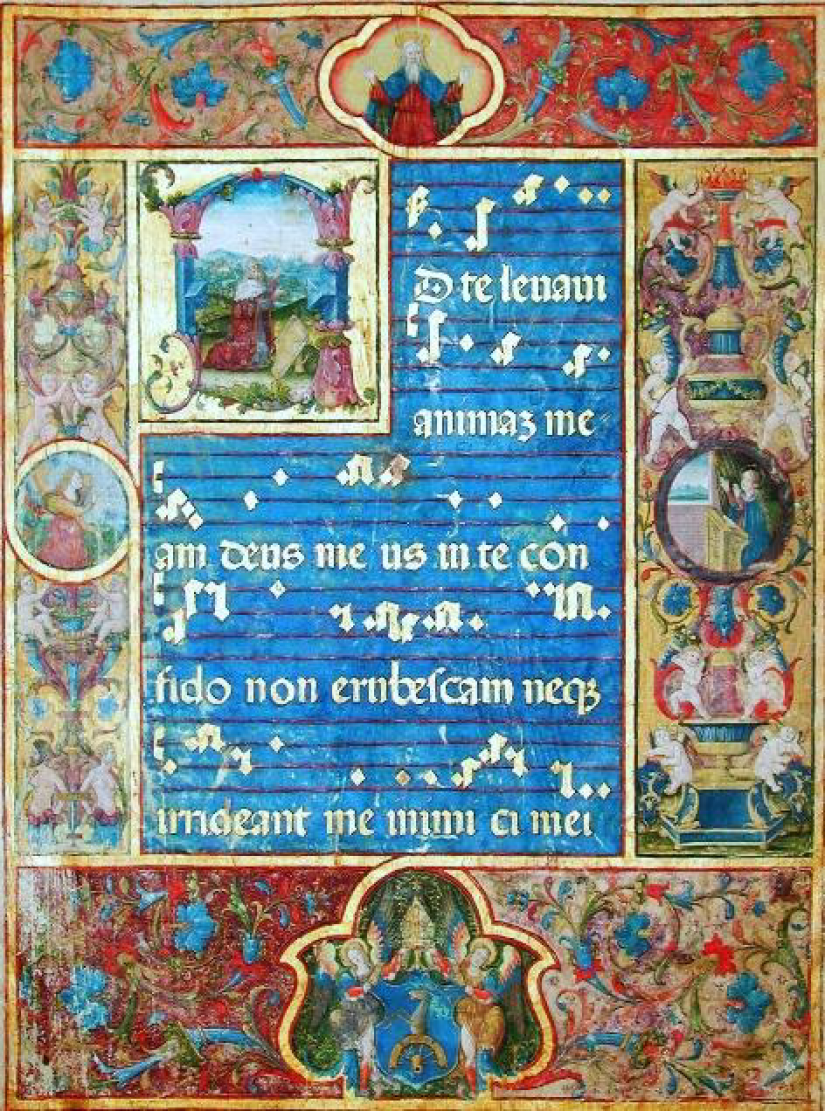 AD te levavi
animaʒ me
am deus me us in te con
fido non erubescam neqʒ
irrideant me inimi ci mei